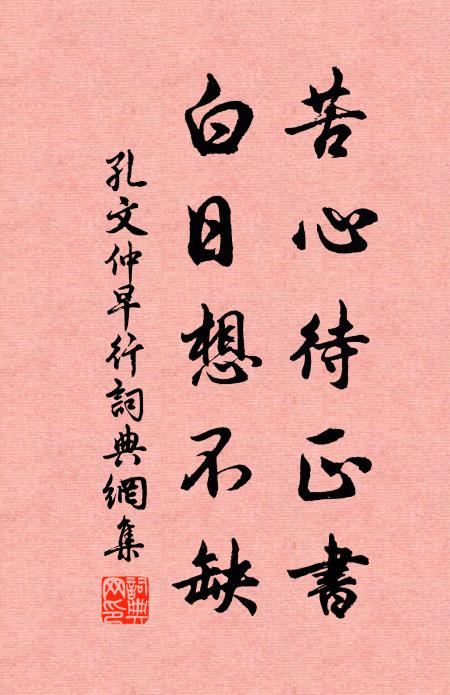 苦心待正書
白日想不缺
孔文仲早行詞典網集
詞典
网印